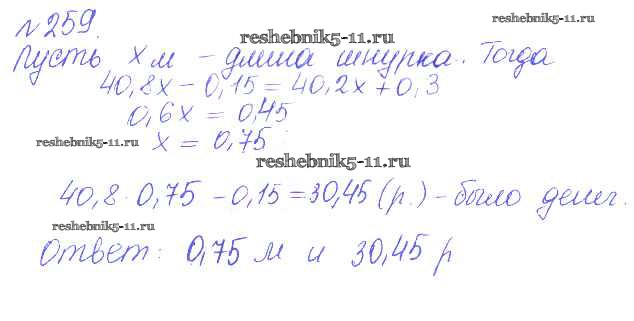 №259.
reshebnik5-11.ru
reshebnik5-11.ru
Пусть х м – длина шнурка. Тогда
40,8х – 0,15 = 40,2х + 0,3
0,6х = 0,45
reshebnik5-11.ru
х = 0,75
reshebnik5-11.ru
40,8 · 0,75 – 0,15 = 30,45 (р.) – было денег.
reshebnik5-11.ru
Ответ: 0,75 м и 30,45 р